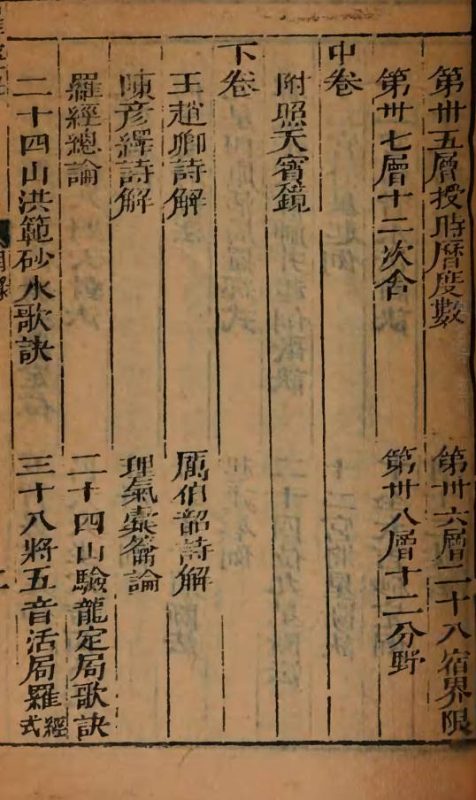 第卅五層授時曆度數 第卅六層二十八宿界限
第卅七層十二次舍 第卅八層十二分野
中卷
附照天寶鏡
下卷
王趙卿詩解 厲伯韶詩解
陳彦繹詩解 理氣橐籥論
羅經總論 二十四山驗龍定局歌訣
二十四山洪範砂水歌訣 三十八將五音活局羅經式
目錄